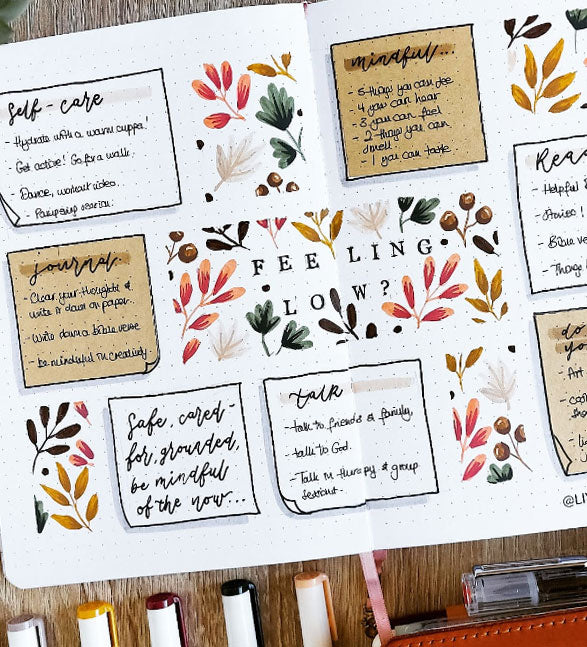 Self-care
- Hydrate with a warm cuppa!
- Get active! Go for a walk.
- Dance, workout video.
- Pampering session.
mindful...
- 5 things you can see
- 4 you can hear
- 3 you can feel
- 2 things you can
smell
- 1 you can taste.
Rea
- Helpful
- Stories!
- Bible ve
- Thoug
journal.
- Clear your thoughts &
write it down on paper.
- Write down a bible verse
- be mindful in creativity.
FEELING
LOW?
do
yo
- Art
- coo
tho
Safe, cared-
for, grounded,
be mindful
of the now...
talk
- talk to friends & family,
- talk to God.
- Talk in therapy & group
session.
@LIV